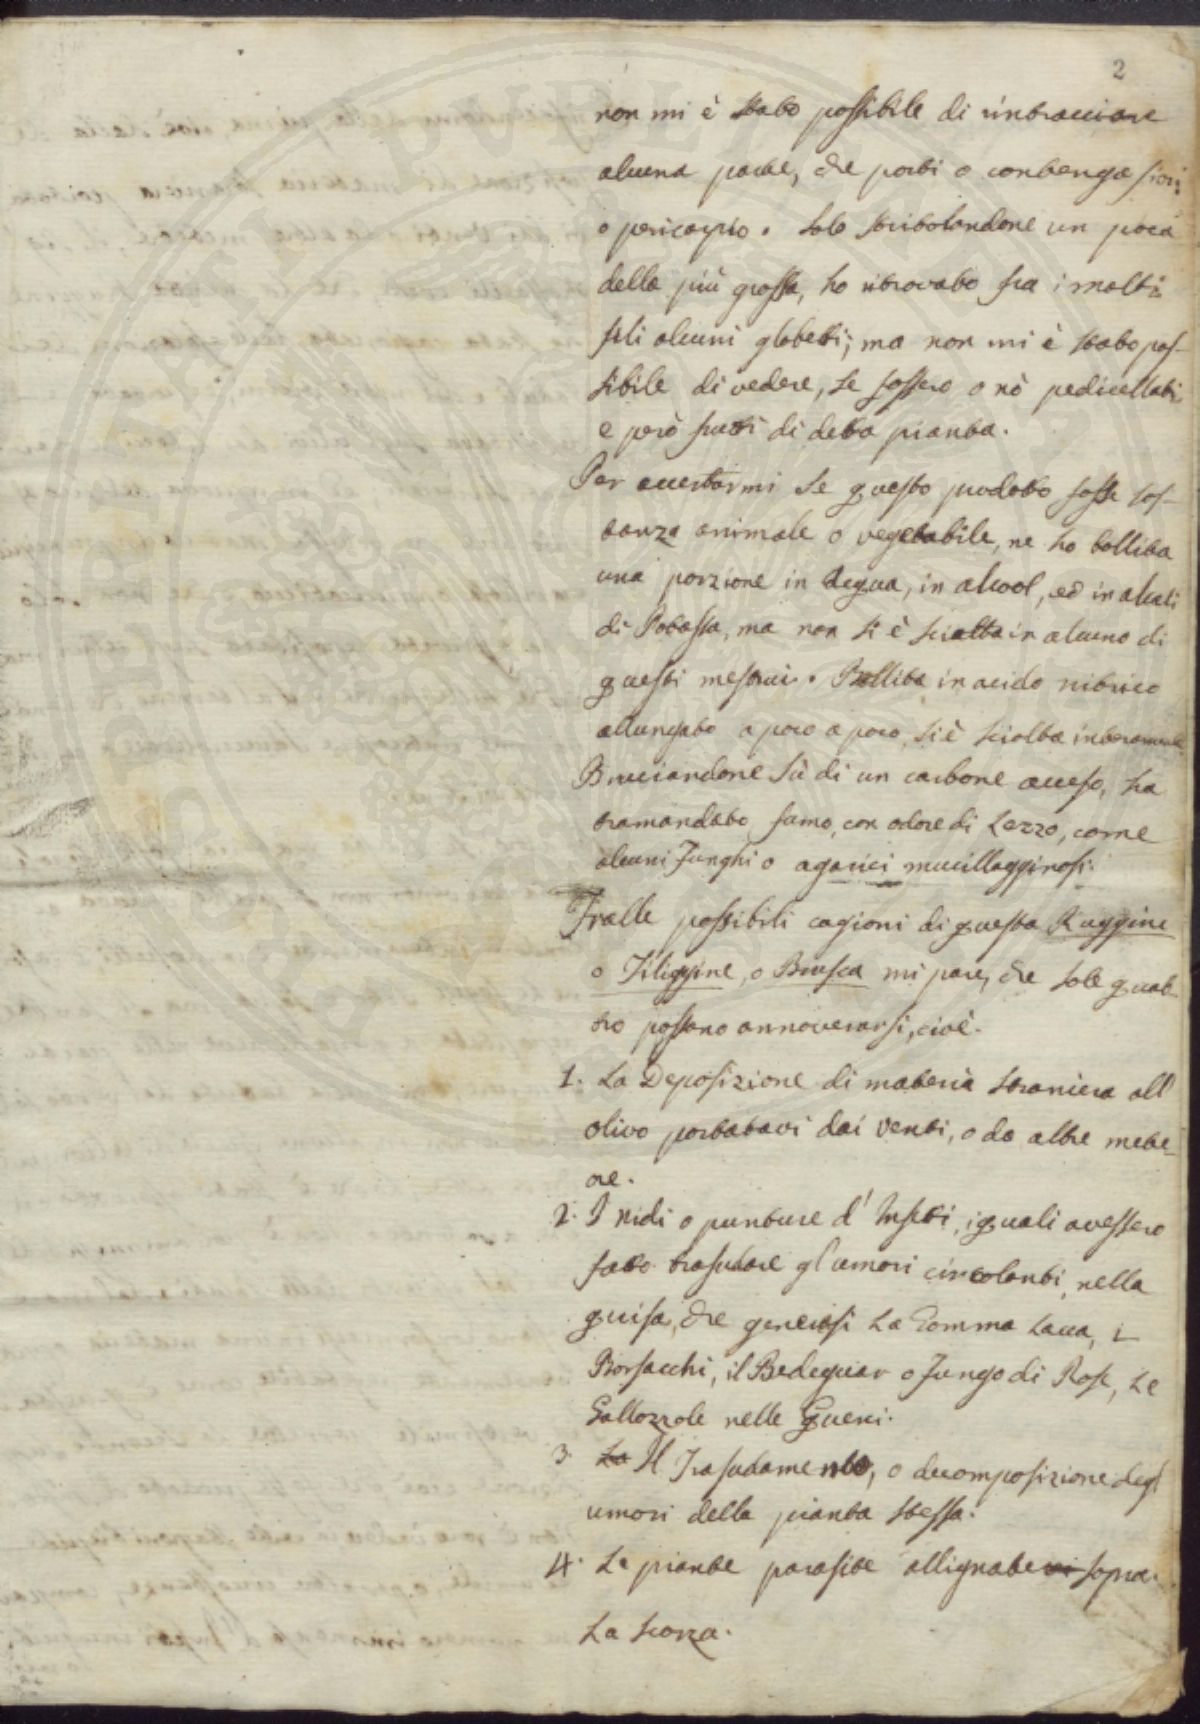 2
non mi è stato possibile di rintracciare
alcuna parte, che porti o contenga fiori
o pericarpio. Solo stritolandone un poca
della più grossa, ho ritrovato fra i molti
fili alcuni globetti; ma non mi è stato pos-
sibile di vedere, se fossero o nò pedicellati
e però frutti di detta pianta.
Per accertarmi se questo prodotto fosse sos-
tanza animale o vegetabile, ne ho bollita
una porzione in acqua, in alcool, ed in alcali
di Potassa, ma non si è sciolta in alcuno di
questi mestrui. Bollita in acido nitrico
allungato a poco a poco, si è sciolta interamente
Bruciandone sù di un carbone acceso, ha
tramandato fumo, con odore di Lezzo, come
alcuni Funghi o agarici mucillagginosi.
Fralle possibili cagioni di questa Ruggine
o Filiggine, o Brusca mi pare, che sole quat-
tro possano annoverarsi, cioè.
1. La Deposizione di materia straniera all'
olivo portatavi dai venti, o da altre mete-
ore.
2. I nidi o punture d'Insetti, i quali avessero
fatto trasudare gl'umori circolanti, nella
guisa, che generasi La Gomma Lacca, i
Borsacchi, il Bedeguar o Fungo di Rose, Le
Gallozzole nelle Querci.
3. La Il Trasudamento, o decomposizione degl'
umori della pianta stessa.
4. Le piante parasite allignatevi sopra
La scorza.